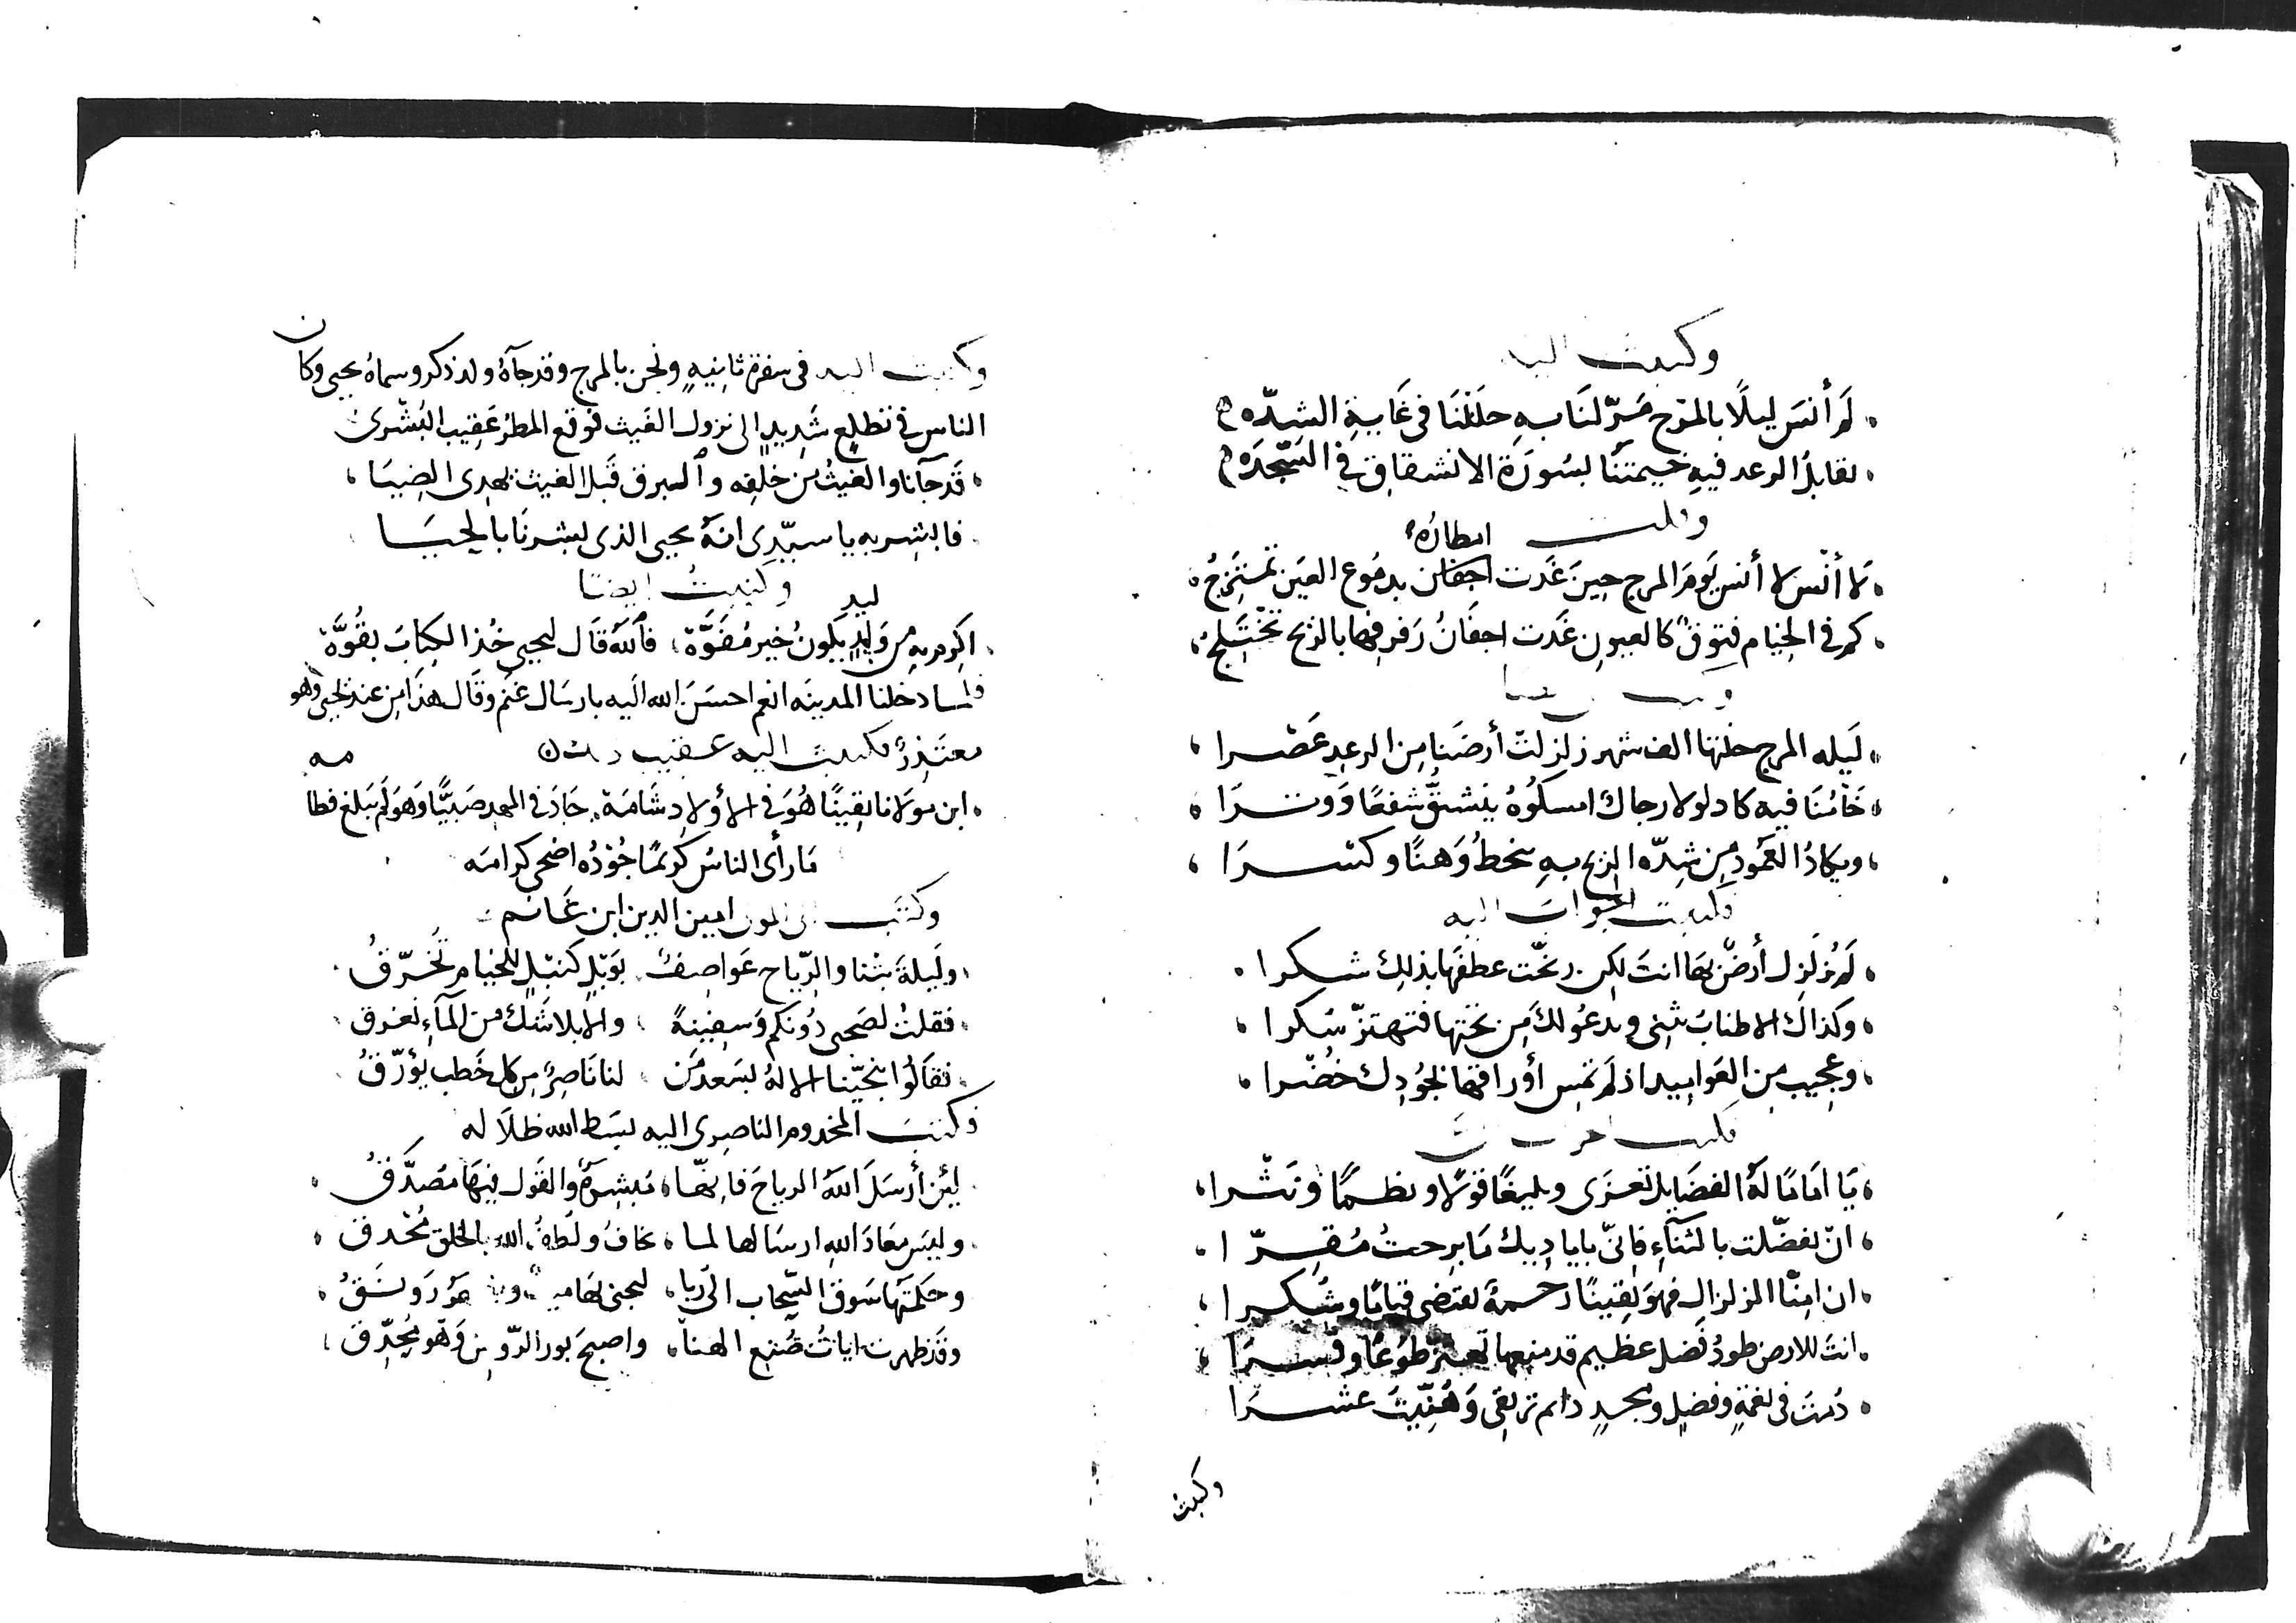 وكتبت اليه
لَم أنسَ ليلًا بالمرج مَرّ لنَا به حلَلنَا في غَايةِ الشدّه
تقابلُ الرعد فيهِ خيمتنَا بسُورَة الانشقاق في السَّجدَه
وقلت
امطارُهُ
لا أنْس لا أنس يَومَ المرج حينَ غَدت اجفان بدمُوع العَين تمتَزجُ
كم في الخيام فتوقٌ كالعيون غَدت اجفَانُ رَفرفها بالريح تختَلجُ
لَيله المرج خلتها الف شهر زلزلت أرضَنا مِنَ الرعدِ عَصْرا
خَامُنَا فيه كاد لولا رجاك امسكوُهُ ينشقُّ شفعًا وَوترَا
ويكادُ العَمُود مِن شدّه الريح به ينحطُ وَهنًا وكسْرَا
فكتبت الجوابَ اليه
لَم تُزلزل أرضٌ بهَا انتَ لكِن رنحّت عطفَها بذلك شكرا
وكذاك الاطنابُ تثنى وتدعُو لكَ مِن تحتها فتهتزّ سُكرا
وعجيب مِن العَواميد اذ لَم تمس أوراقها بجُودِك خُضْرا
فكتب
يَا امَامًا لَهُ الفضَايل تعزَى وبليغًا قولًا ونظمًا ونَثْرا
انْ تفضّلت بالثنَآءِ فانّى باياديك مَا برحتُ مُقِرّا
ان امِنّا الزلزال فهوَ يقينًا رحمة تقتضى قيامًا وشُكرا
انتَ للارض طودُ فَضل عظيم قد منعها تهتز طَوعًا وقسرَا
دُمتَ في نعمَةٍ وفضلٍ ومجدٍ دائم ترتقى وَهُنّيتَ عشرَا
وكتبت
وكتبت اليه في سفرة ثانيهٍ ونحن بالمرج وقد جآهُ ولد ذكر وسماهُ يحيى وكان
الناس في تطلعٍ شَديدٍ الى نزول الغيث فوقع المطرُ عَقِيب البُشْرى
قَد جآنا والغيثُ من خلفِه والبرق قبلَ الغيث يهدِى الضيَا
فابشر به يا سيّدِى انهُ يحيى الذى بشرنَا بالحيَا
وكتبتُ ايضًا
ليد
اكرم به من وَليدٍ يَكونُ خير مُفَوَّهْ فاللّهُ قَال ليحيى خُذ الكِتابَ بقُوَّةْ
فلما دخلنا المدينَه انعم احسَنَ الله اليه بارسَال غَنم وقَال هذَا مِن عند يحيى وهو
معتَذِرٌ فكتبت اليه عقيب
مه
ابن مولانا يقِينًا هُوَ في الأولادِ شَامَة جَادَ في المهدِ صَبِيًّا وَهوَ لَم يَبلغ فطا
مَا رأى الناسُ كريمًا جُوْدُه اضحى كرامَه
وكتَب الى المولى امين الدين ابن غَانم
ولَيلةَ بتْنا والرّياح عَواصِفٌ بوَبْلٍ كنَبْلٍ للخيام تُخَرّقُ
فقلتُ لصَحبى دُونكم وَسفينةً والا بلا شكَ من المآءِ نغرق
فقَالُوا تنجيّنا الإلهُ بسَعدِ مَن لنا نَاصِرٌ مِن كل خَطب يؤرّقُ
فكتبَ المخدوم الناصِرى اليه بسَط الله ظلَاله
لئِن أرسَلَ اللّهُ الرياحَ فانهّا مُبشِرَةٌ والقَول فِيهَا مُصَدَّقُ
وليسَ مَعَاذ اللّهِ ارسَالها لما يخافُ ولُطفُ الله بالخلق مُحدق
وحكمتُهَا سَوقُ السَّحاب الى
وقَد ظهرت اياتُ صُنْع الهنَا واصبحَ